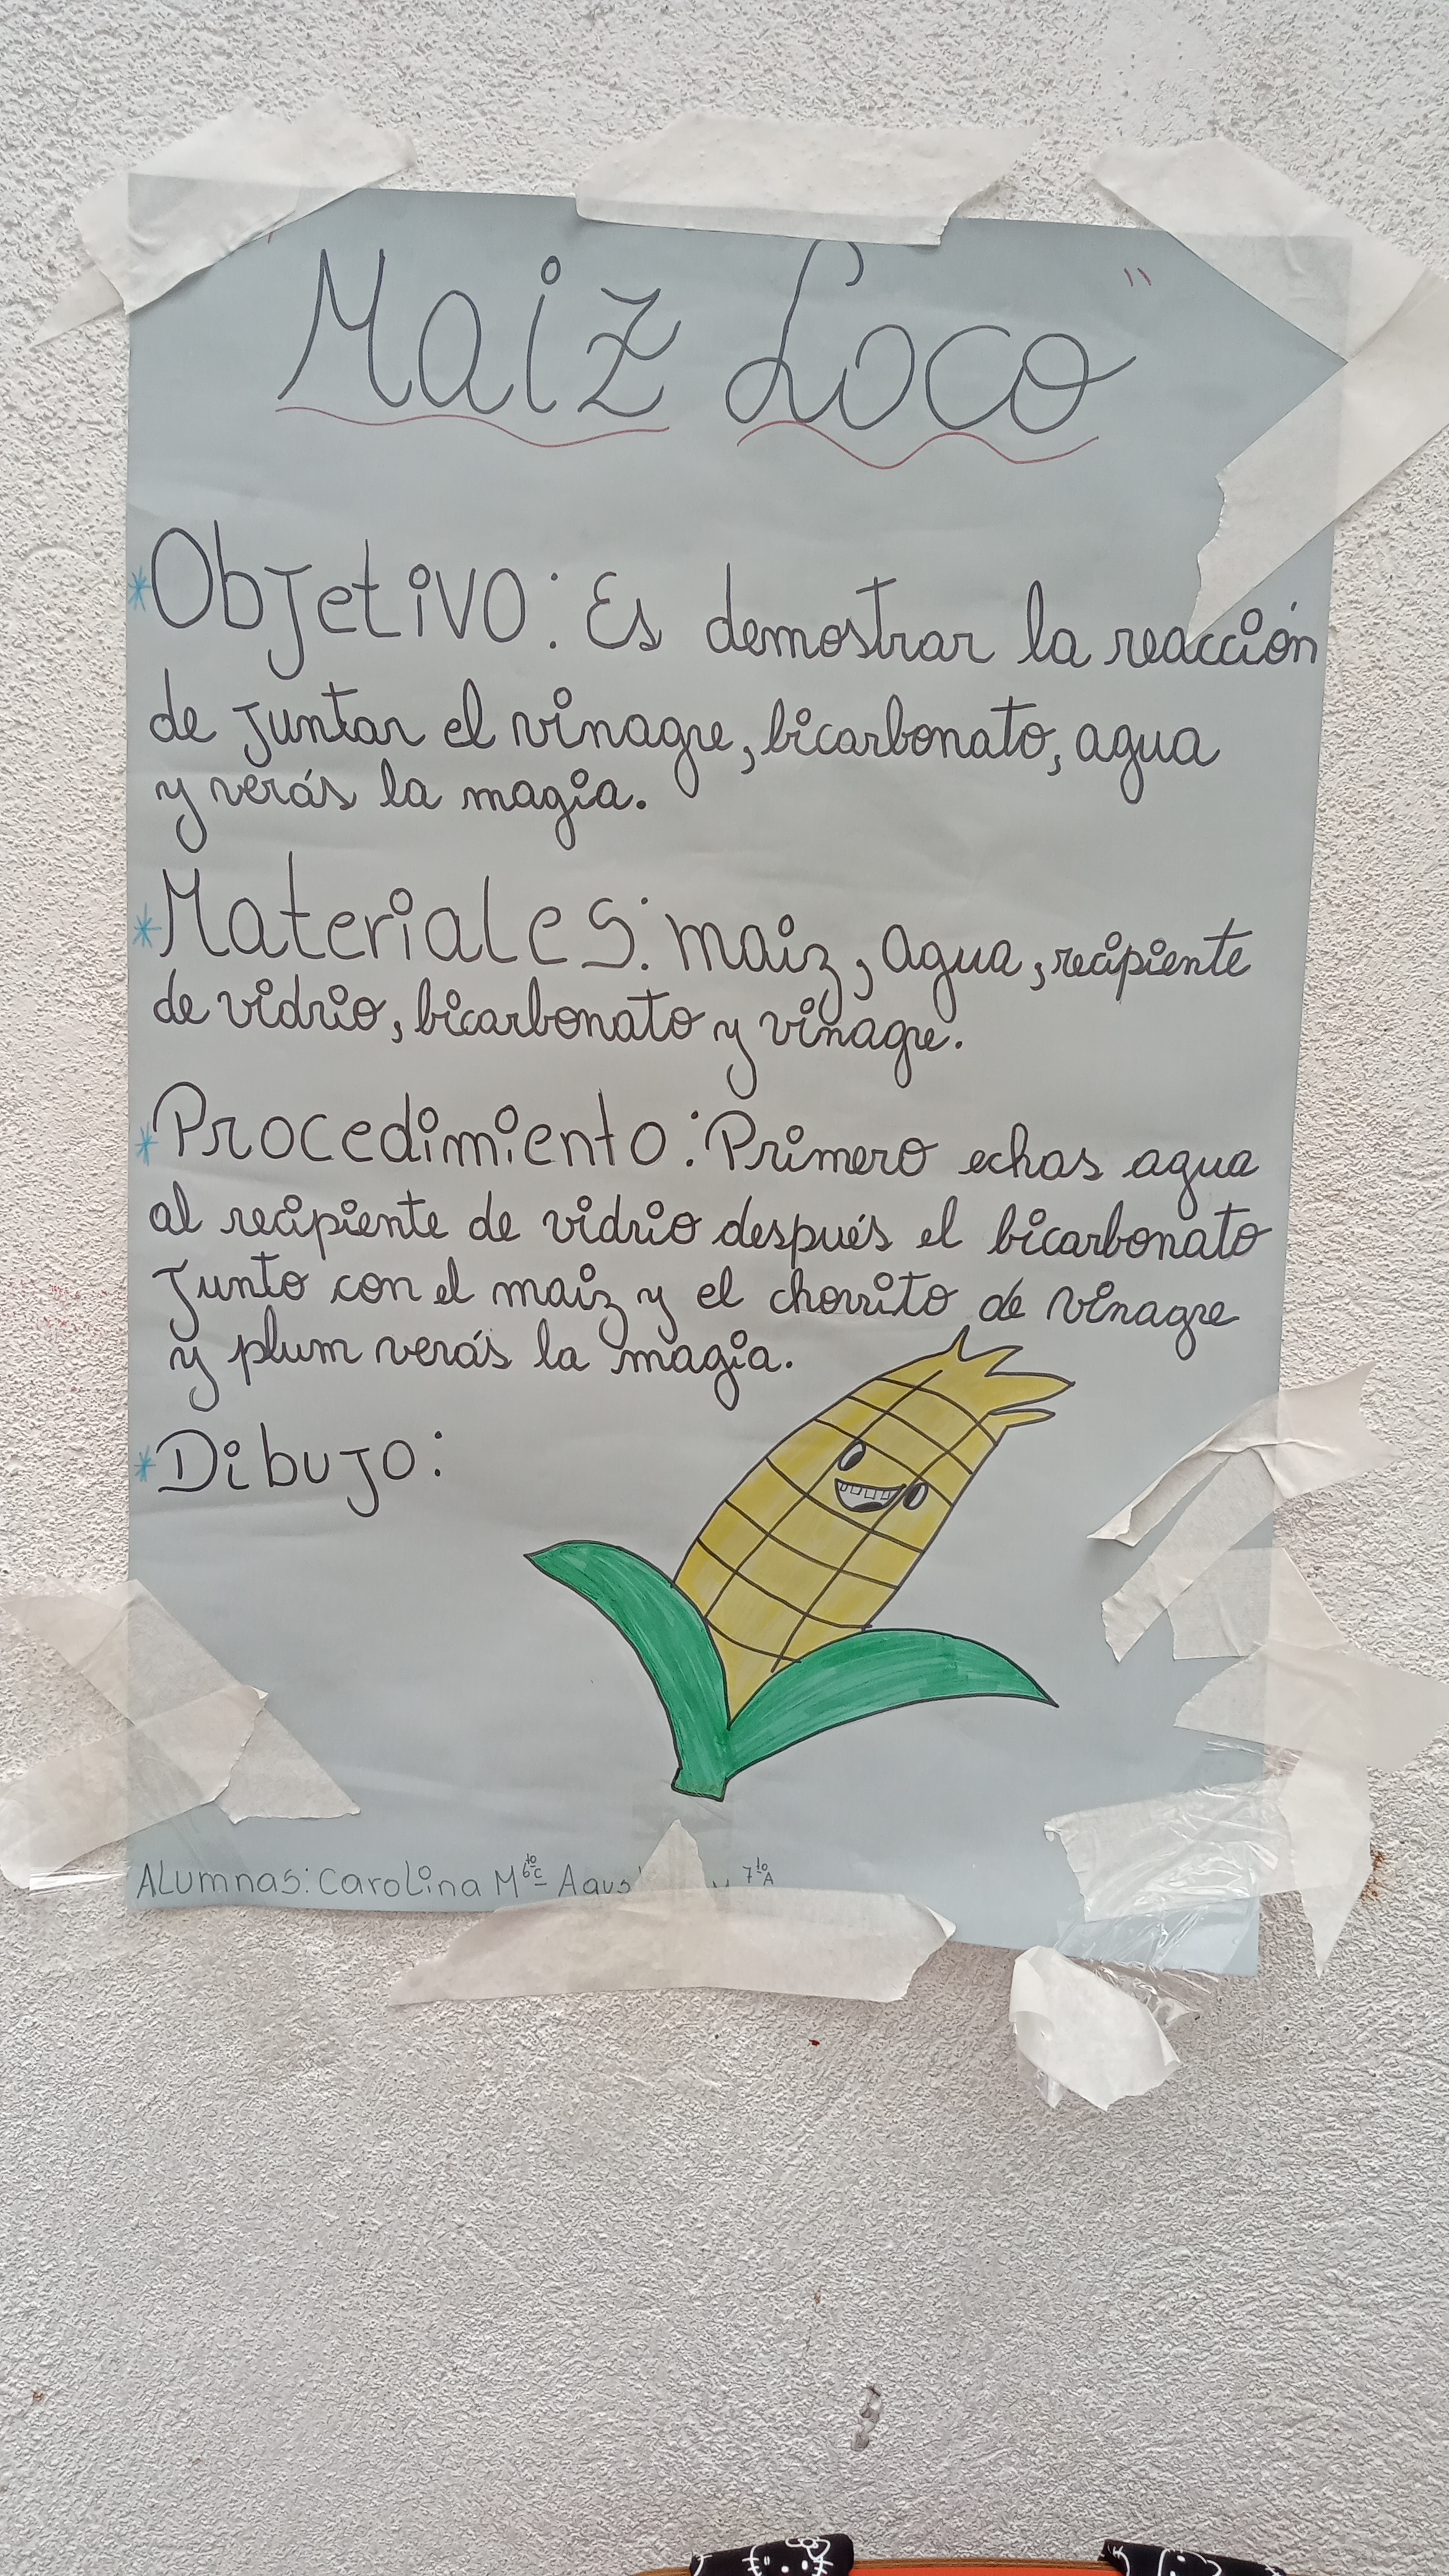 Maiz Loco"
*Objetivo: Es demostrar la reacción
de juntar el vinagre, bicarbonato, agua
y verás la magia.
*Materiales: maiz, agua, recipiente
de vidrio, bicarbonato y vinagre.
*Procedimiento: Primero echas agua
al recipiente de vidrio después el bicarbonato
junto con el maiz y el chorrito de vinagre
y plum verás la magia.
*Dibujo:
Alumnas: Carolina M 6to C 7to A